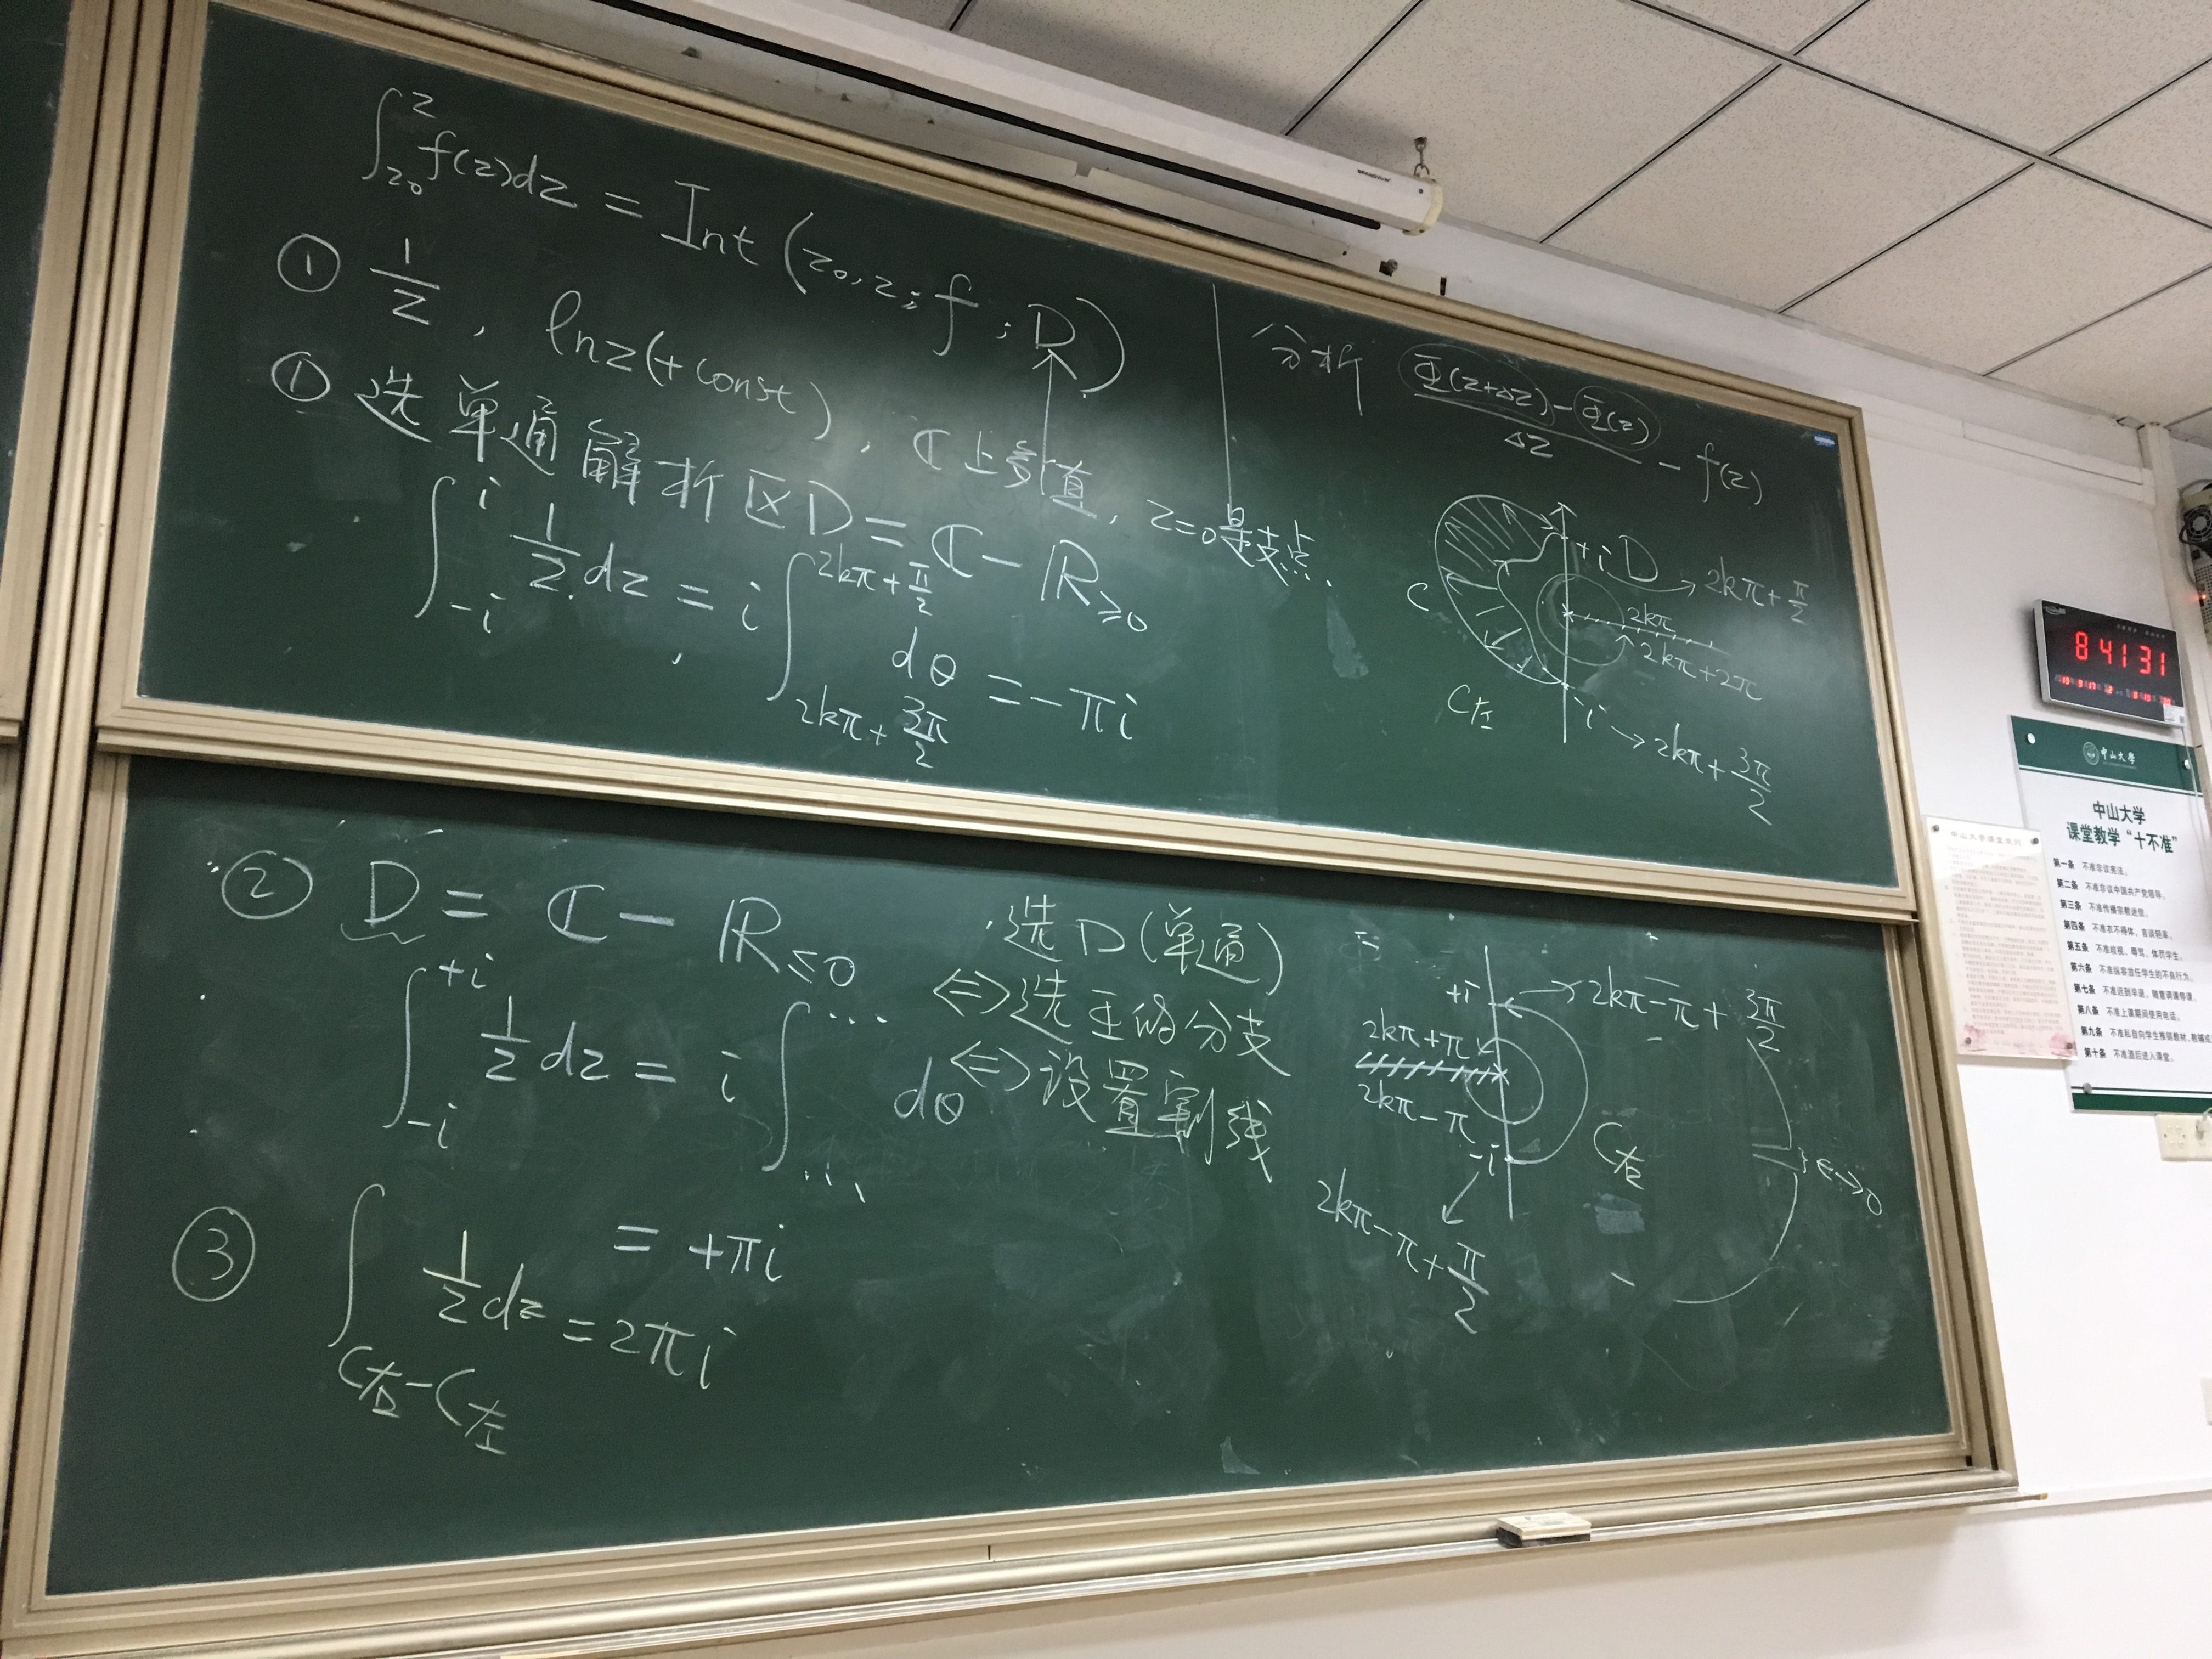 ∫_{z0}^{z} f(z)dz = Int (z0, z; f; D)
① 1/z , ln z (+ const) , ℂ上多值, z=0是支点.
① 选单通解析区D = ℂ - ℝ≥0
∫_{-i}^{i} 1/z dz = i ∫_{2kπ+3π/2}^{2kπ+π/2} dθ = -πi
分析 (Φ(z+Δz) - Φ(z))/Δz - f(z)
+i D → 2kπ + π/2
C
2kπ
2kπ+2π
C左
-i → 2kπ + 3π/2
② D = ℂ - ℝ≤0
∫_{-i}^{+i} 1/z dz = i ∫_{...}^{...} dθ
= +πi
③ ∫_{C右-C左} 1/z dz = 2πi
选D(单通)
⇔ 选Φ的分支
⇔ 设置割线
+i → 2kπ - π + 3π/2
2kπ+π
2kπ-π
-i
C右
2kπ - π + π/2
ε→0
8 41 31
中山大学
中山大学
课堂教学“十不准”
第一条 不准非议宪法。
第二条 不准非议中国共产党领导。
第三条 不准传播宗教迷信。
第四条 不准衣不得体，言谈粗鄙。
第五条 不准歧视、辱骂、体罚学生。
第六条 不准纵容放任学生的不良行为。
第七条 不准迟到早退，随意调课停课。
第八条 不准上课期间使用电话。
第九条 不准私自向学生推销教材、教辅
第十条 不准酒后进入课堂。